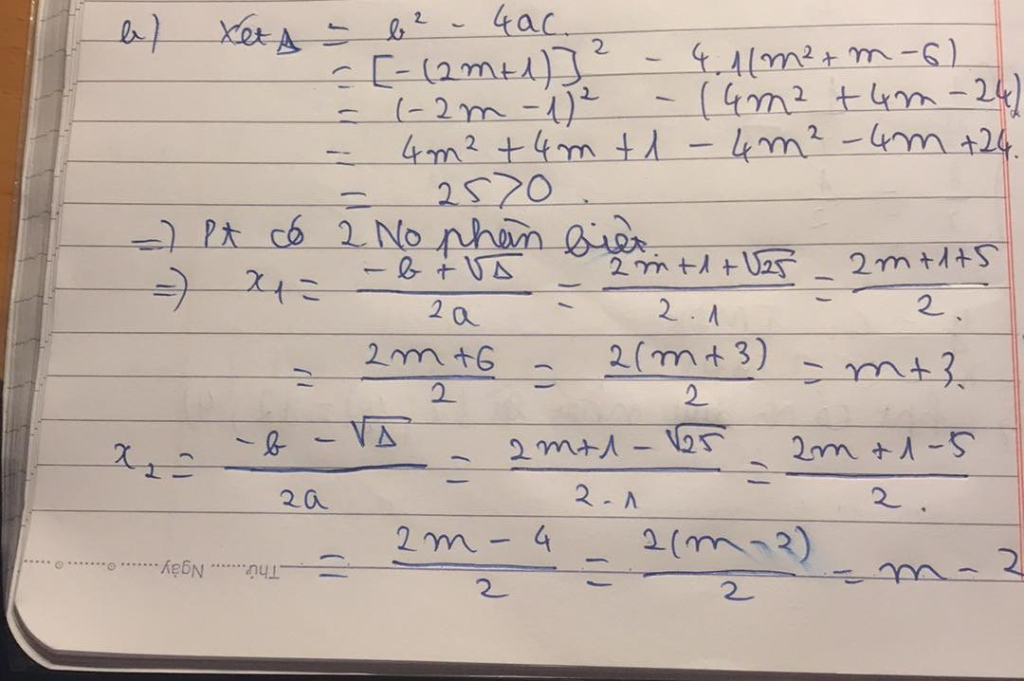 b) Xét Δ = b² - 4ac.
= [-(2m+1)]² - 4.1(m² + m - 6)
= (-2m - 1)² - (4m² + 4m - 24)
= 4m² + 4m + 1 - 4m² - 4m + 24.
= 25 > 0.
=) Pt có 2 No phân biệt.
=) x₁ = (-b + √Δ)/(2a) = (2m + 1 + √25)/(2.1) = (2m + 1 + 5)/2.
= (2m + 6)/2 = (2(m + 3))/2 = m + 3.
x₂ = (-b - √Δ)/(2a) = (2m + 1 - √25)/(2.1) = (2m + 1 - 5)/2.
= (2m - 4)/2 = (2(m - 2))/2 = m - 2
Thứ ........ Ngày ........